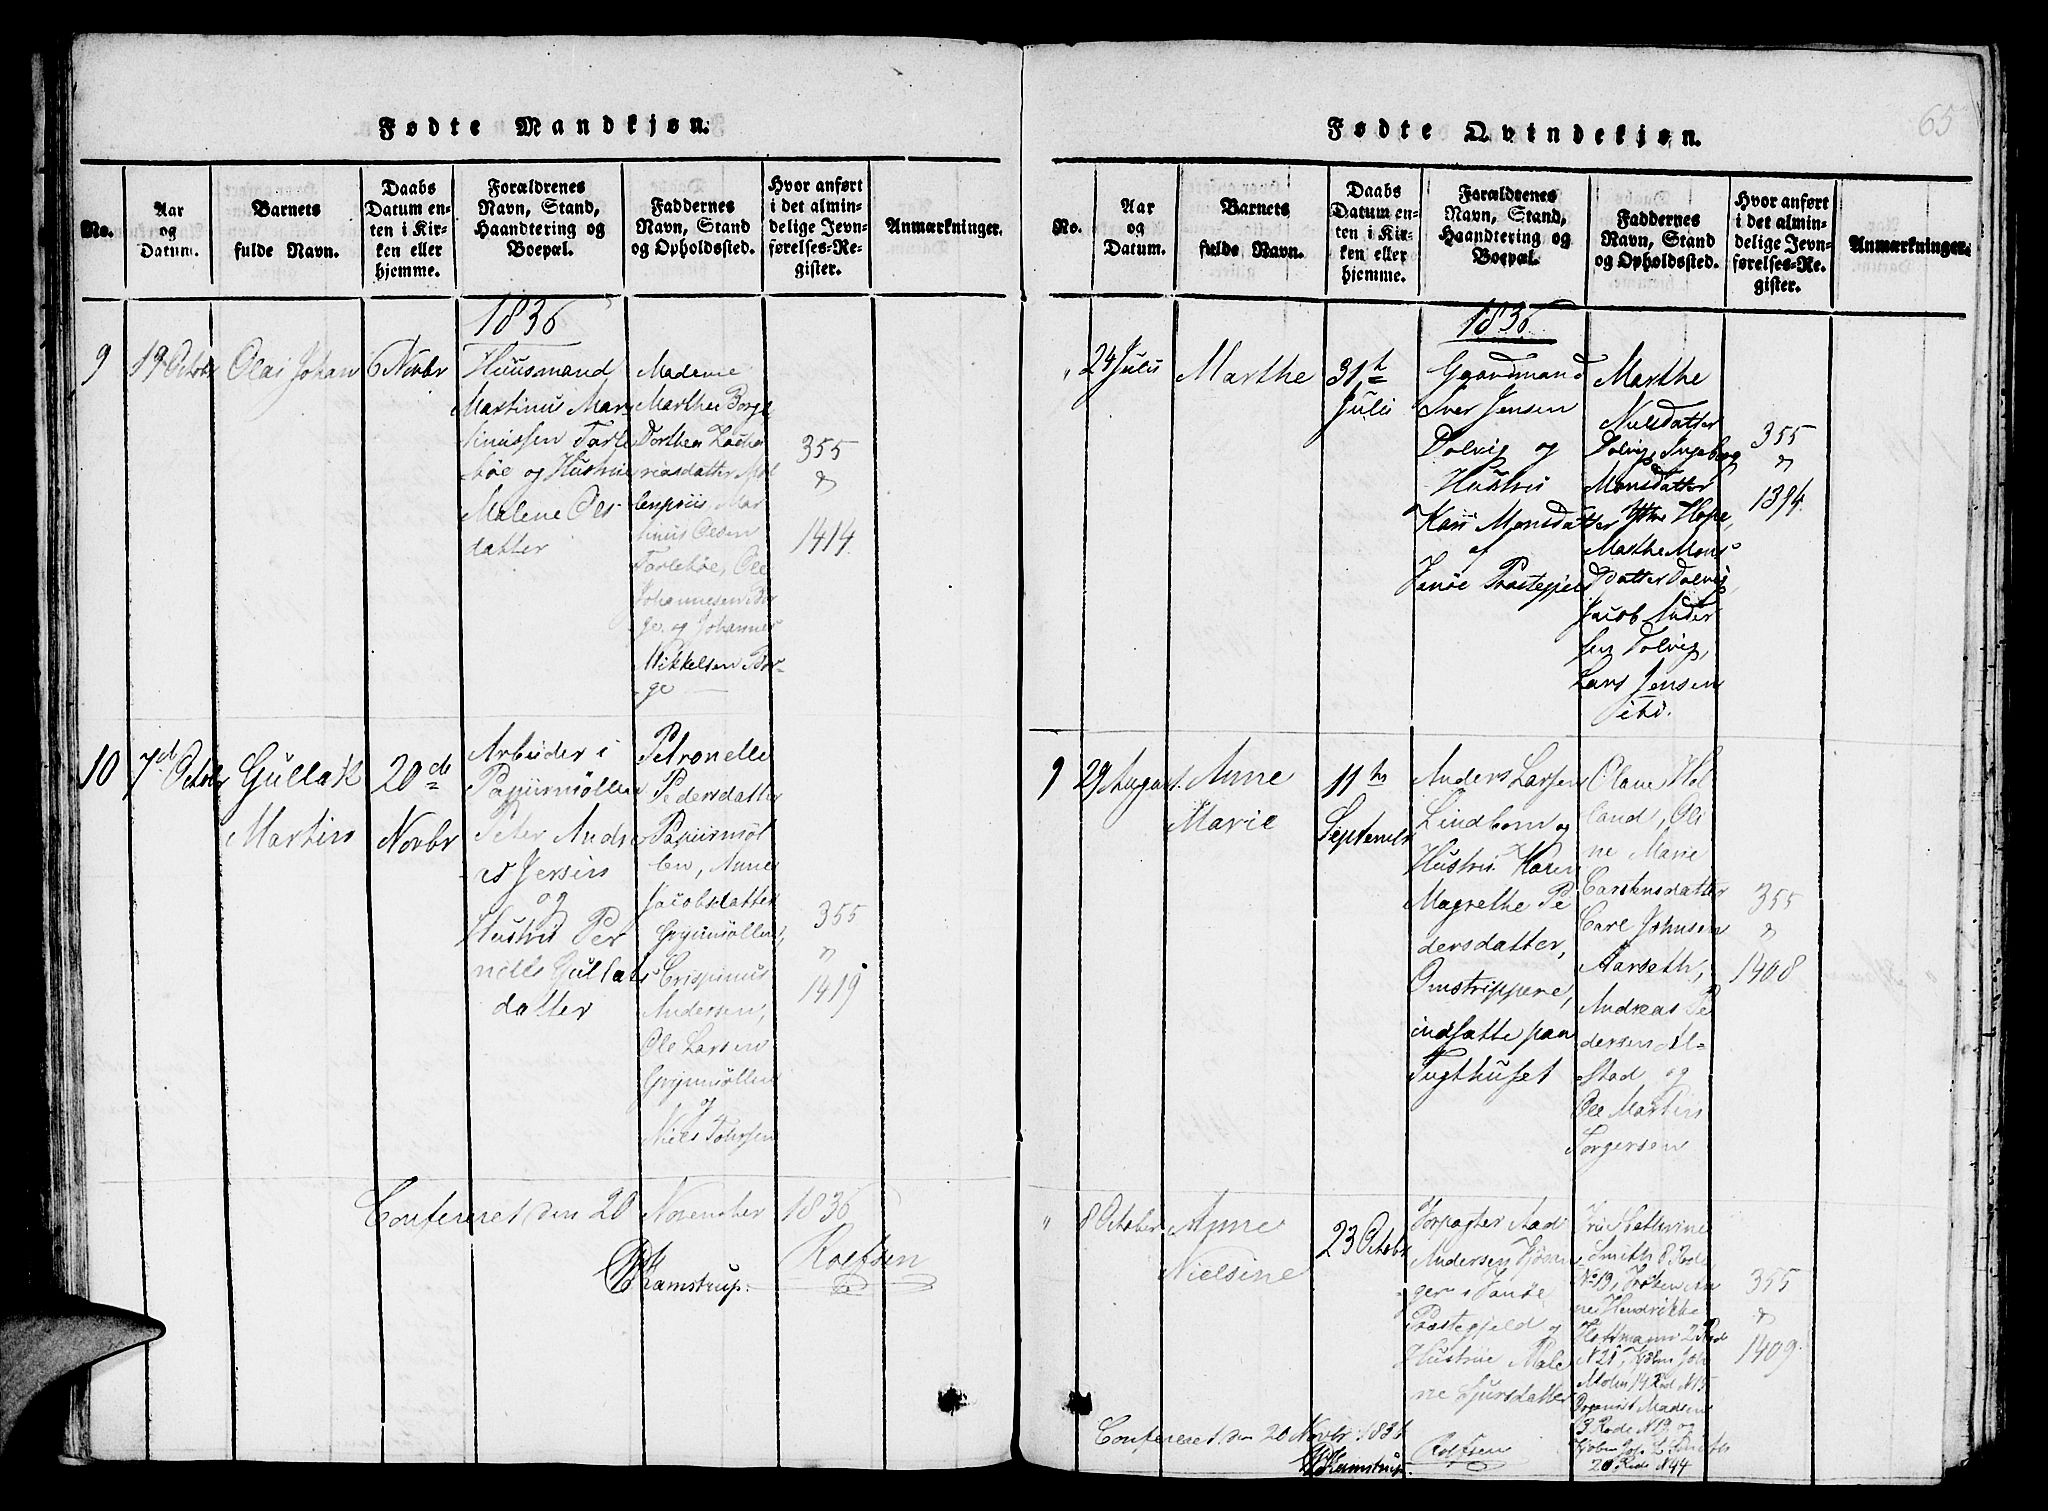 65
Fødte Mandkjøn.
No.
Aar
og
Datum.
Barnets
fulde Navn.
Daabs
Datum en-
ten i Kir-
ken eller
hjemme.
Forældrenes
Navn, Stand,
Haandtering og
Boepæl.
Faddernes
Navn, Stand
og Opholdssted.
Hvor anført
i det almin-
delige Jevn-
førelses-Re-
gister.
Anmærkninger.
1836
9
19 Octobr
Olai Johan
6 Novbr
Huusmand
Martinus Mar
tinussen Tarle
böe og Hustrue
Malene Ols
datter
Madame
Marthe Borge
Dorthea Zacha
riasdatter Møl
lenpriis, Mar
tinus Olsen
Tarleböe, Ole
Johannesen Bor
ge og Johannes
Mikkelsen Bor-
ge
355
&
1414
10
7d Octobr
Gullak
Martin
20de
Novbr
Arbeider i
Papiirmöllen
Peter Andre
as Jersin
og
Hustru Per
nille Gullaks
datter
Petronelle
Pedersdatter
Papiirmöl
len, Anne
Jacobsdatter
Grynmöllen,
Crispinus
Andersen,
Ole Larsen
Grynmöllen
og
Niels Tohrsen
355
"
1419
Confereret den 20 November 1836
Kamstrup. Rolfsen
Fødte Qvindekjøn.
No.
Aar
og
Datum.
Barnets
fulde Navn.
Daabs
Datum en-
ten i Kir-
ken eller
hjemme.
Forældrenes
Navn, Stand,
Haandtering og
Boepæl.
Faddernes
Navn, Stand
og Opholdssted.
Hvor anført
i det almin-
delige Jevn-
førelses-Re-
gister.
Anmærkninger.
1836
"
24 Julii
Marthe
31th
Julii
Gaardmand
Iver Jensen
Dolvig og
Hustru
Kari Monsdatter
af
Præstegjeld
Marthe
Nilsdatter
Dolvig, Ingeborg
Monsdatter
Ythre Hope,
Marthe Mons
Datter Dolvig,
Jacob Ander
sen Dolvig,
Lars Jensen
ibid.
355
&
1394
9
29 August
Anne
Marie
11te
Septembr
Anders Larsen
Lindborn og
Hustru Karen
Magrethe Pe
dersdatter,
Omstrippere,
indsatte paa
Tugthuset
Olave Hol
land, Oli
ne Marie
Carstensdatter
Carl Johnsen
Aarseth,
Andreas Pe
dersen Al-
stad og
Ole Martin
Torgersen
355
&
1408
"
8 October
Anne
Nielsine
23 Octobr
Forpagter Aad
Andersen
ger i
Præstegjeld og
Hustrue Male
ne Sjursdatter
Frue Cathrine
Smith 8 Rode
No 19, Frøken An
ne Hendrikke
Hoffmann 2 Rode
N 21, Kjøbm Joh
Molin 14 Rod N 15
Organist Madsen
13 Rode N 19 og
Kjöbm Joh L Smith
20 Rode N 44
355
&
1409
Confereret den 20 Novbr 1836
Kamstrup. Rolfsen